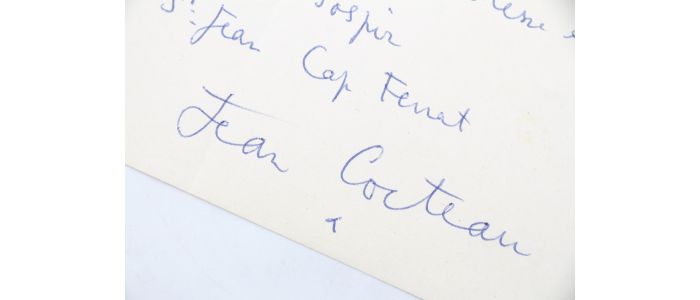 Sospir
St Jean Cap Ferrat
Jean Cocteau